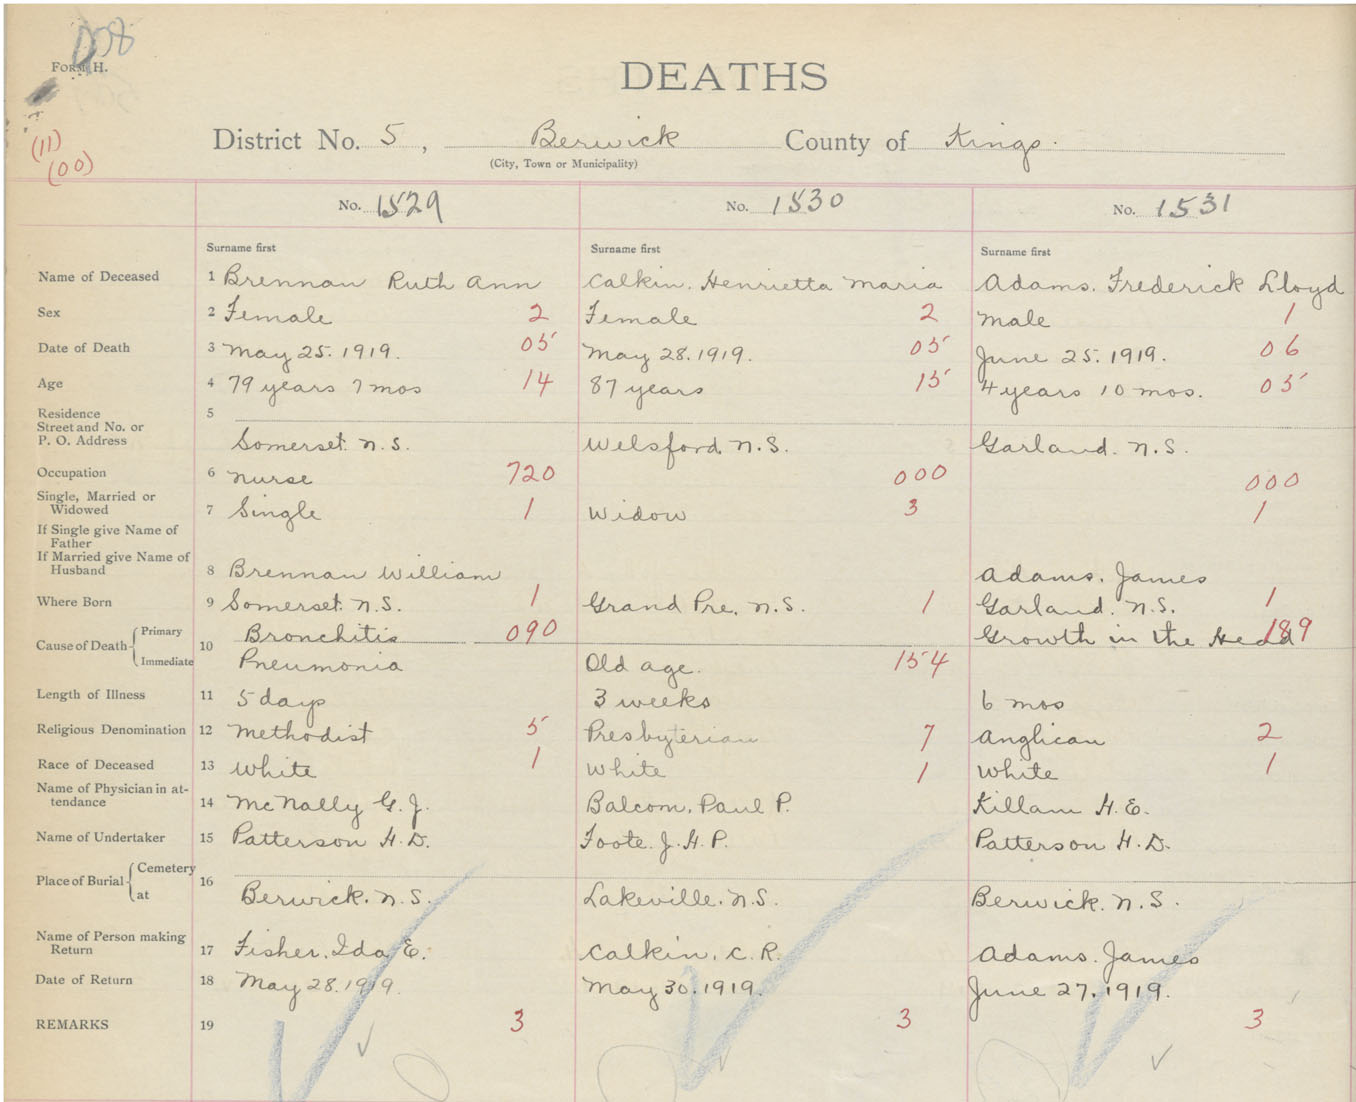 D08
FORM H.
DEATHS
(11)
(00)
District No. 5, Berwick County of Kings.
(City, Town or Municipality)
No. 1529 No. 1530 No. 1531
Surname first Surname first Surname first
Name of Deceased 1 Brennan Ruth Ann Calkin, Henrietta Maria Adams. Frederick Lloyd
Sex 2 Female 2 Female 2 Male 1
Date of Death 3 May 25. 1919. 05 May 28. 1919. 05 June 25. 1919. 06
Age 4 79 years 7 mos 14 87 years 15 4 years 10 mos. 05
Residence 5
Street and No. or
P. O. Address Somerset. N.S. Welsford. N.S. Garland. N.S.
Occupation 6 Nurse 720 000 000
Single, Married or
Widowed 7 Single 1 Widow 3 1
If Single give Name of
Father
If Married give Name of
Husband 8 Brennan William Adams. James
Where Born 9 Somerset. N.S. 1 Grand Pre. N.S. 1 Garland. N.S. 1
Cause of Death Primary 10 Bronchitis 090 Growth in the Head 189
Immediate Pneumonia Old age. 154
Length of Illness 11 5 days 3 weeks 6 mos
Religious Denomination 12 Methodist 5 Presbyterian 7 Anglican 2
Race of Deceased 13 White 1 White 1 White 1
Name of Physician in at-
tendance 14 McNally G. J. Balcom, Paul P. Killam H. E.
Name of Undertaker 15 Patterson H. D. Foote. J. H. P. Patterson H. D.
Place of Burial Cemetery 16
at Berwick. N.S. Lakeville. N.S. Berwick. N.S.
Name of Person making
Return 17 Fisher, Ida E. Calkin, C. R. Adams. James
Date of Return 18 May 28. 1919. May 30. 1919. June 27. 1919.
REMARKS 19 3 3 3